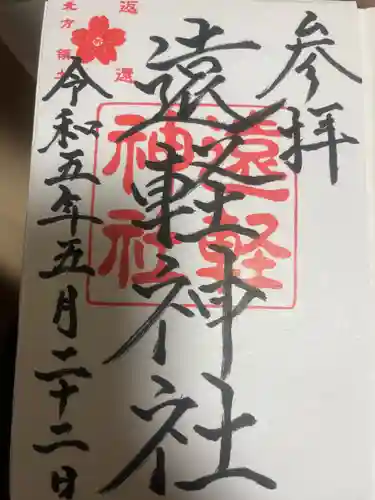 参拝
遠軽神社
遠軽
神社
返還
北方領土
令和五年五月二十二日